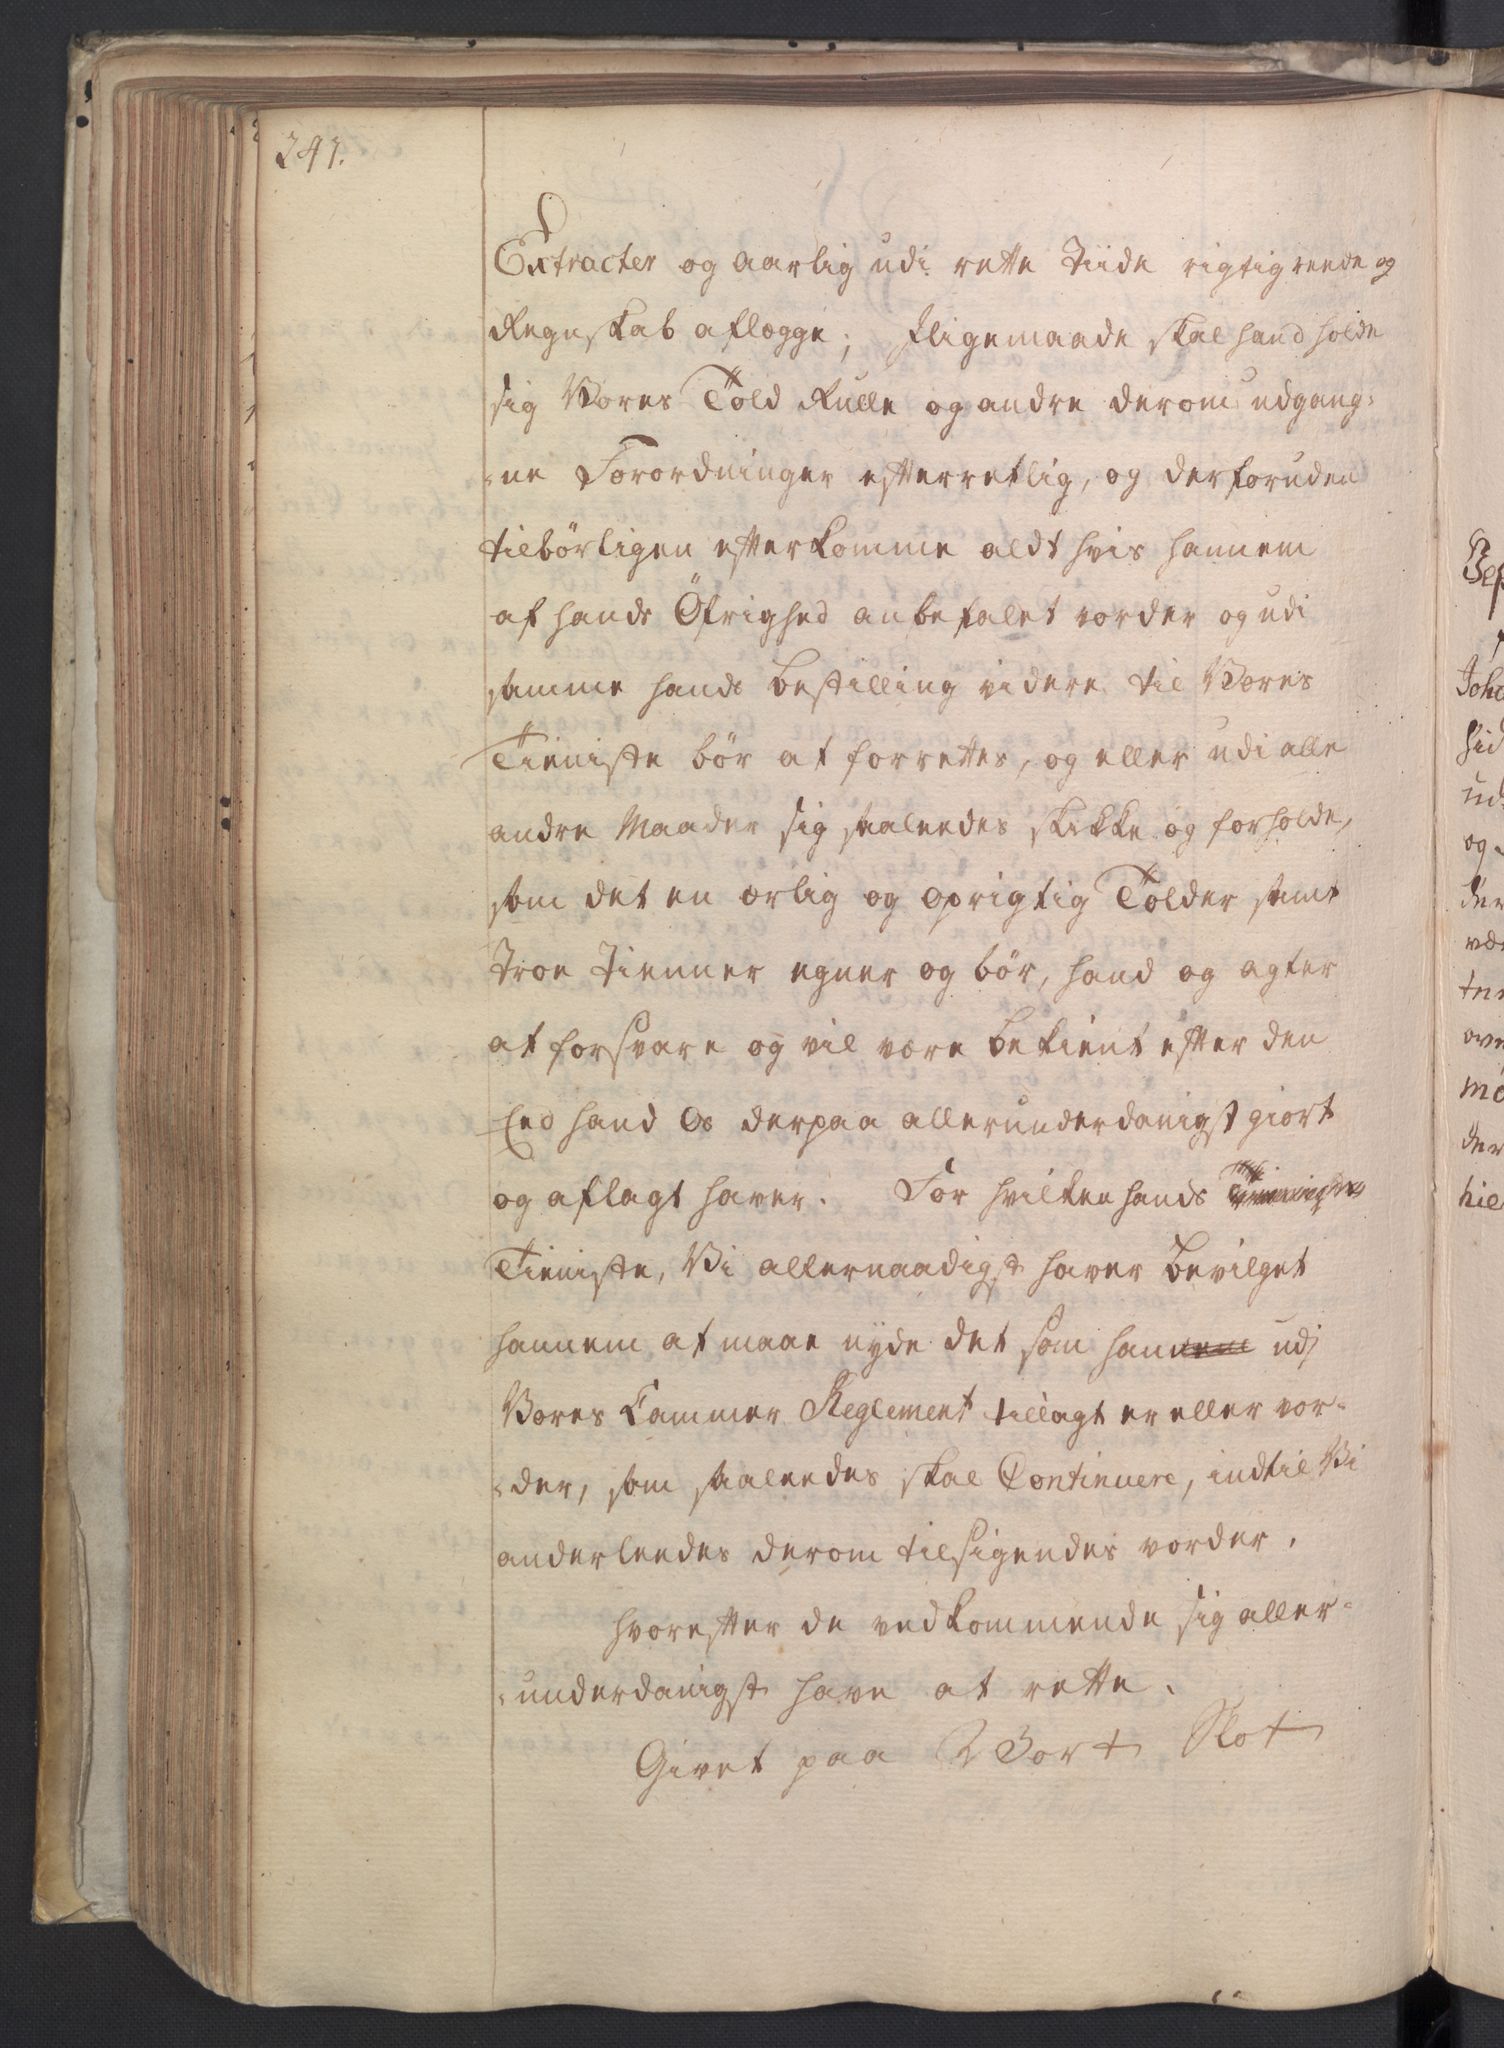 247.
Extracter og aarlig udi rette Tiide rigtig reede og
Regnskab aflegge; Iligemaade skal hand holde
sig Vores Told Rulle og andre derom udgang:
:ne Forordninger efterretlig, og derforuden
tilbørligen efterkomme aldt hvis hannem
af hands Öfrighed anbefalet vorder og udi
samme hands bestilling videre til Vores
Tieniste bör at forrettes, og eller udi alle
andre Maader sig saaledes skikke og forholde,
som det en ærlig og oprigtig Tolder samt
troe tienner egner og bör, hand og agter
at forsvare og vil være bekient efter den
Eed hand Os derpaa allerunderdanigst giort
og aflagt haver. For hvilken hands
Tieniste, Vi allernaadigst haver bevilget
hannem at maae nyde det som hannem udj
Vores Cammer Reglement tillagt er eller vor-
:der, som saaledes skal Continuere, indtil Vi
anderleedes derom tilsigendes vorder.
Hvorefter de vedkommende sig aller-
:underdanigst have at rette.
Givet paa Vort Slot
Joha
hid
ud
og
der
tn
mo
der
hie